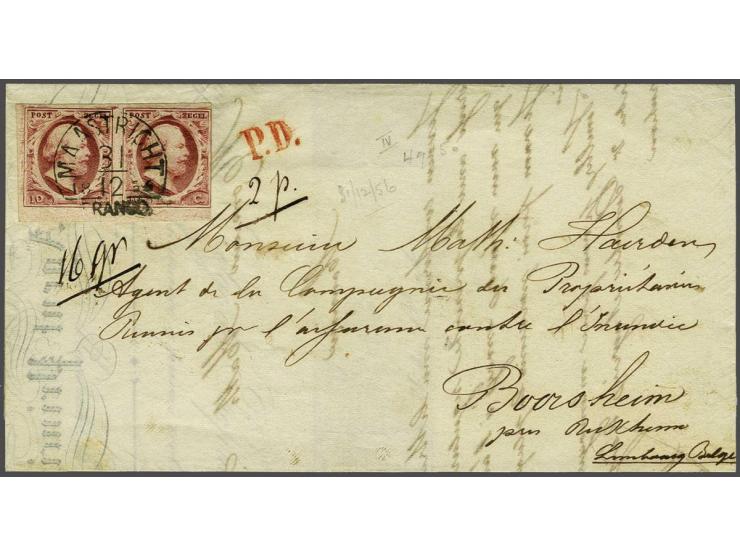 POST ZEGEL POST ZEGEL
MAASTRICHT
31
12
FRANCO
10 C
P.D.
IV
495
31/12/56
2 p.
16 gr
Monsieur Math. Haerden
Agent de la Compagnie des Propriétaires
Reunis pr l'assurance contre l'Incendie
Boorsheim
près Reckheim
Limbourg Belge